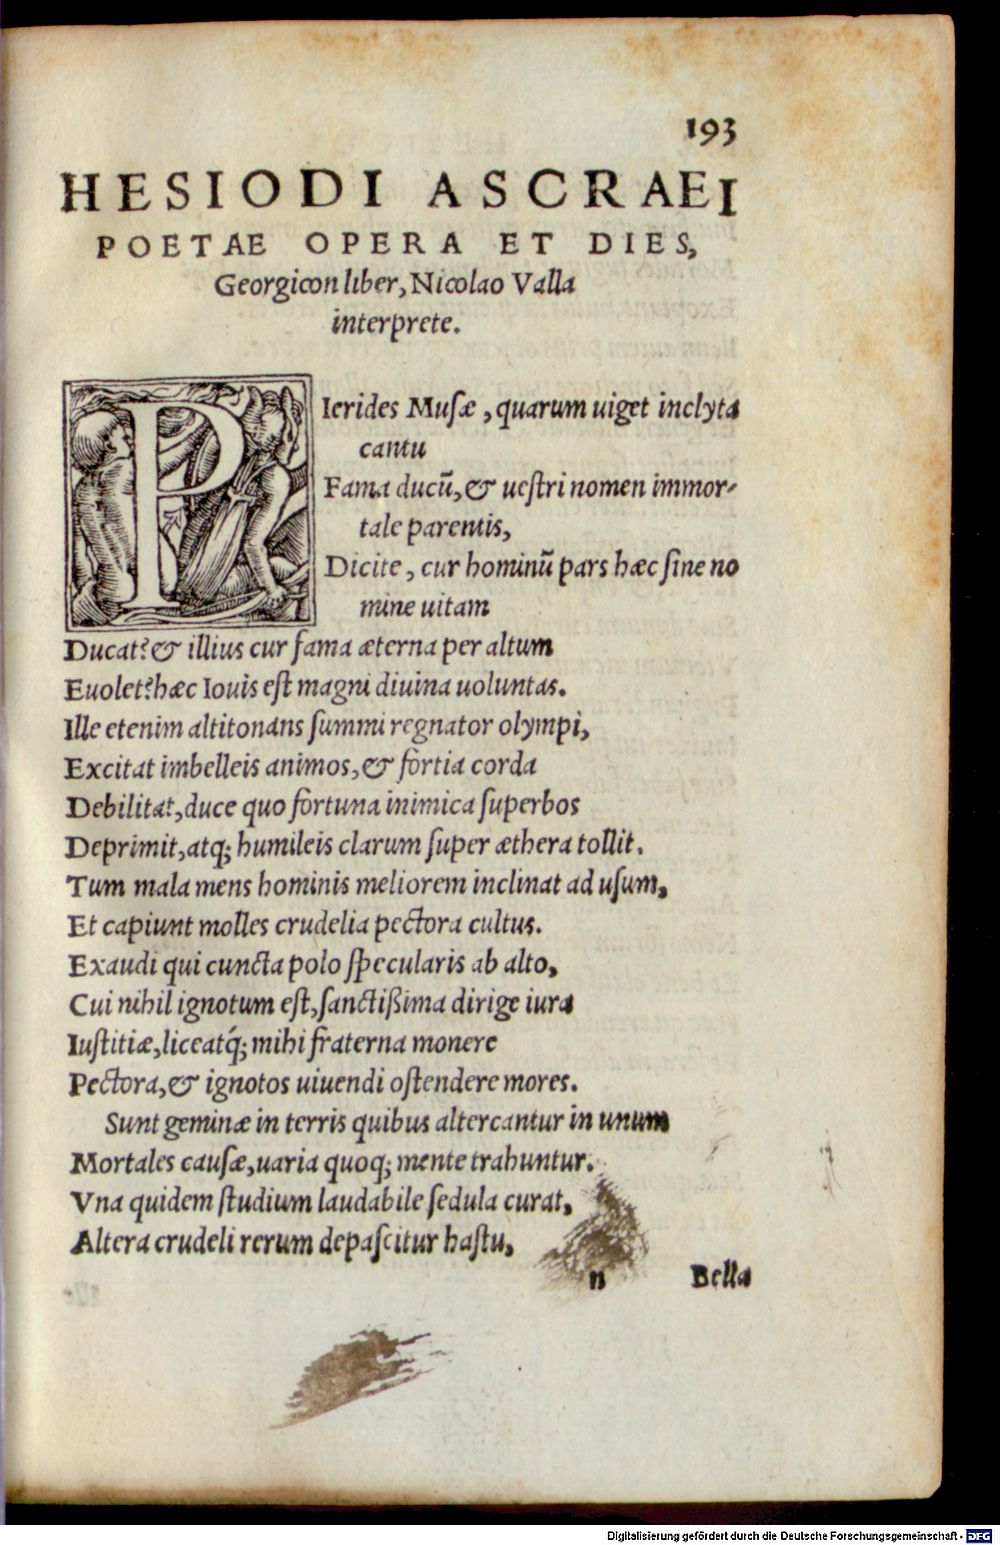 193
HESIODI ASCRAEI
POETAE OPERA ET DIES,
Georgicon liber, Nicolao Valla
interprete.
PIerides Musæ, quarum uiget inclyta
cantu
Fama ducũ, & uestri nomen immor-
tale parentis,
Dicite, cur hominũ pars hæc sine no
mine uitam
Ducat? & illius cur fama æterna per altum
Euolet? hæc Iouis est magni diuina uoluntas.
Ille etenim altitonans summi regnator olympi,
Excitat imbelleis animos, & fortia corda
Debilitat, duce quo fortuna inimica superbos
Deprimit, atq; humileis clarum super æthera tollit.
Tum mala mens hominis meliorem inclinat ad usum,
Et capiunt molles crudelia pectora cultus.
Exaudi qui cuncta polo specularis ab alto,
Cui nihil ignotum est, sanctißima dirige iura
Iustitiæ, liceatq́; mihi fraterna monere
Pectora, & ignotos uiuendi ostendere mores.
Sunt geminæ in terris quibus altercantur in unum
Mortales causæ, uaria quoq; mente trahuntur.
Vna quidem studium laudabile sedula curat,
Altera crudeli rerum depascitur hastu,
n Bella
Digitalisierung gefördert durch die Deutsche Forschungsgemeinschaft - DFG